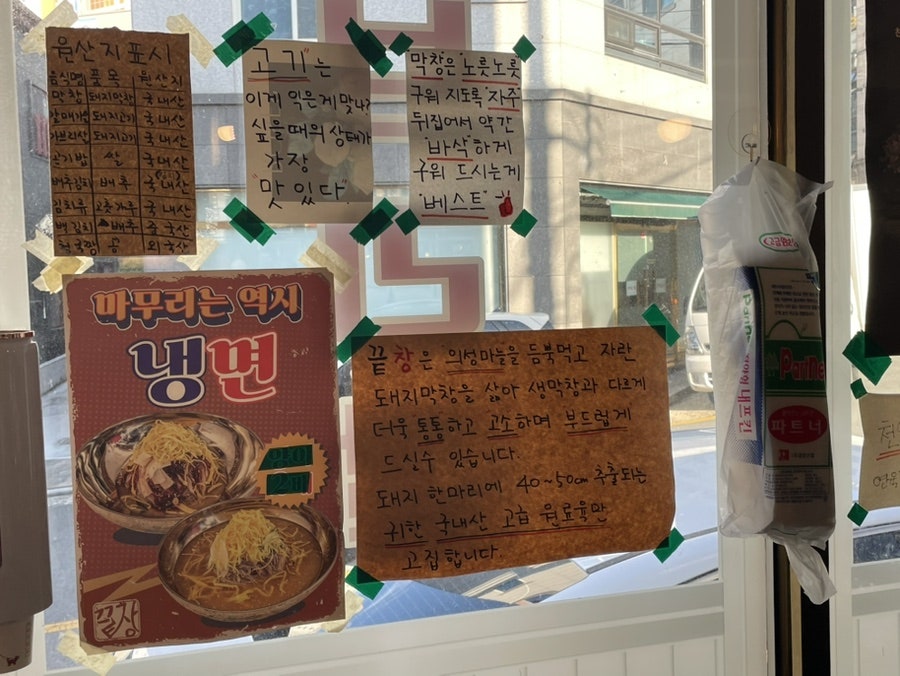 원산지표시
음식명 품목 원산지
막창 돼지막창 국내산
갈매기살 돼지고기 국내산
가브리살 돼지고기 국내산
공기밥 쌀 국내산
배추김치 배추 국내산
김치류 고춧가루 국내산
백김치 배추 중국산
콩 외국산
"고기"는
이게 익은게 맞나?
싶을때의 상태가
가장
"맛있다"
막창은 "노릇노릇
구워 지도록 "자주"
뒤집어서 약간
"바삭"하게
구워 드시는게
"베스트"
마무리는 역시
냉면
끝창
끝창은 의성마늘을 듬북먹고 자란
돼지막창을 삶아 생막창과 다르게
더욱 통통하고 고소하며 부드럽게
드실수 있습니다.
돼지 한마리에 40~50cm 추출되는
귀한 국내산 고급 원료육만
고집합니다.
고급
내프킨
파트너